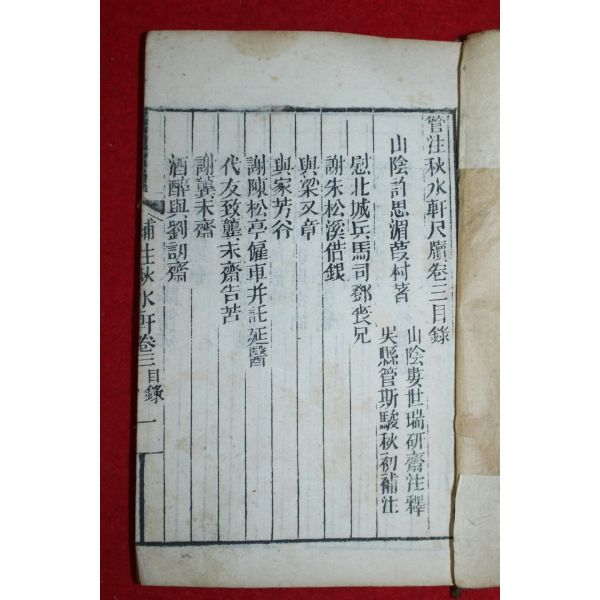 管注秋水軒尺牘卷三目錄
山陰許思湄葭村著
山陰婁世瑞硏齋注釋
吳縣管斯駿秋初補注
慰北城兵馬司鄧喪兄
謝朱松溪借銀
與梁又章
與家芳谷
謝陳松亭僱車并託延醫
代友致龔未齋告苦
謝龔未齋
酒醉與劉訒齋
補注秋水軒卷三目錄 一